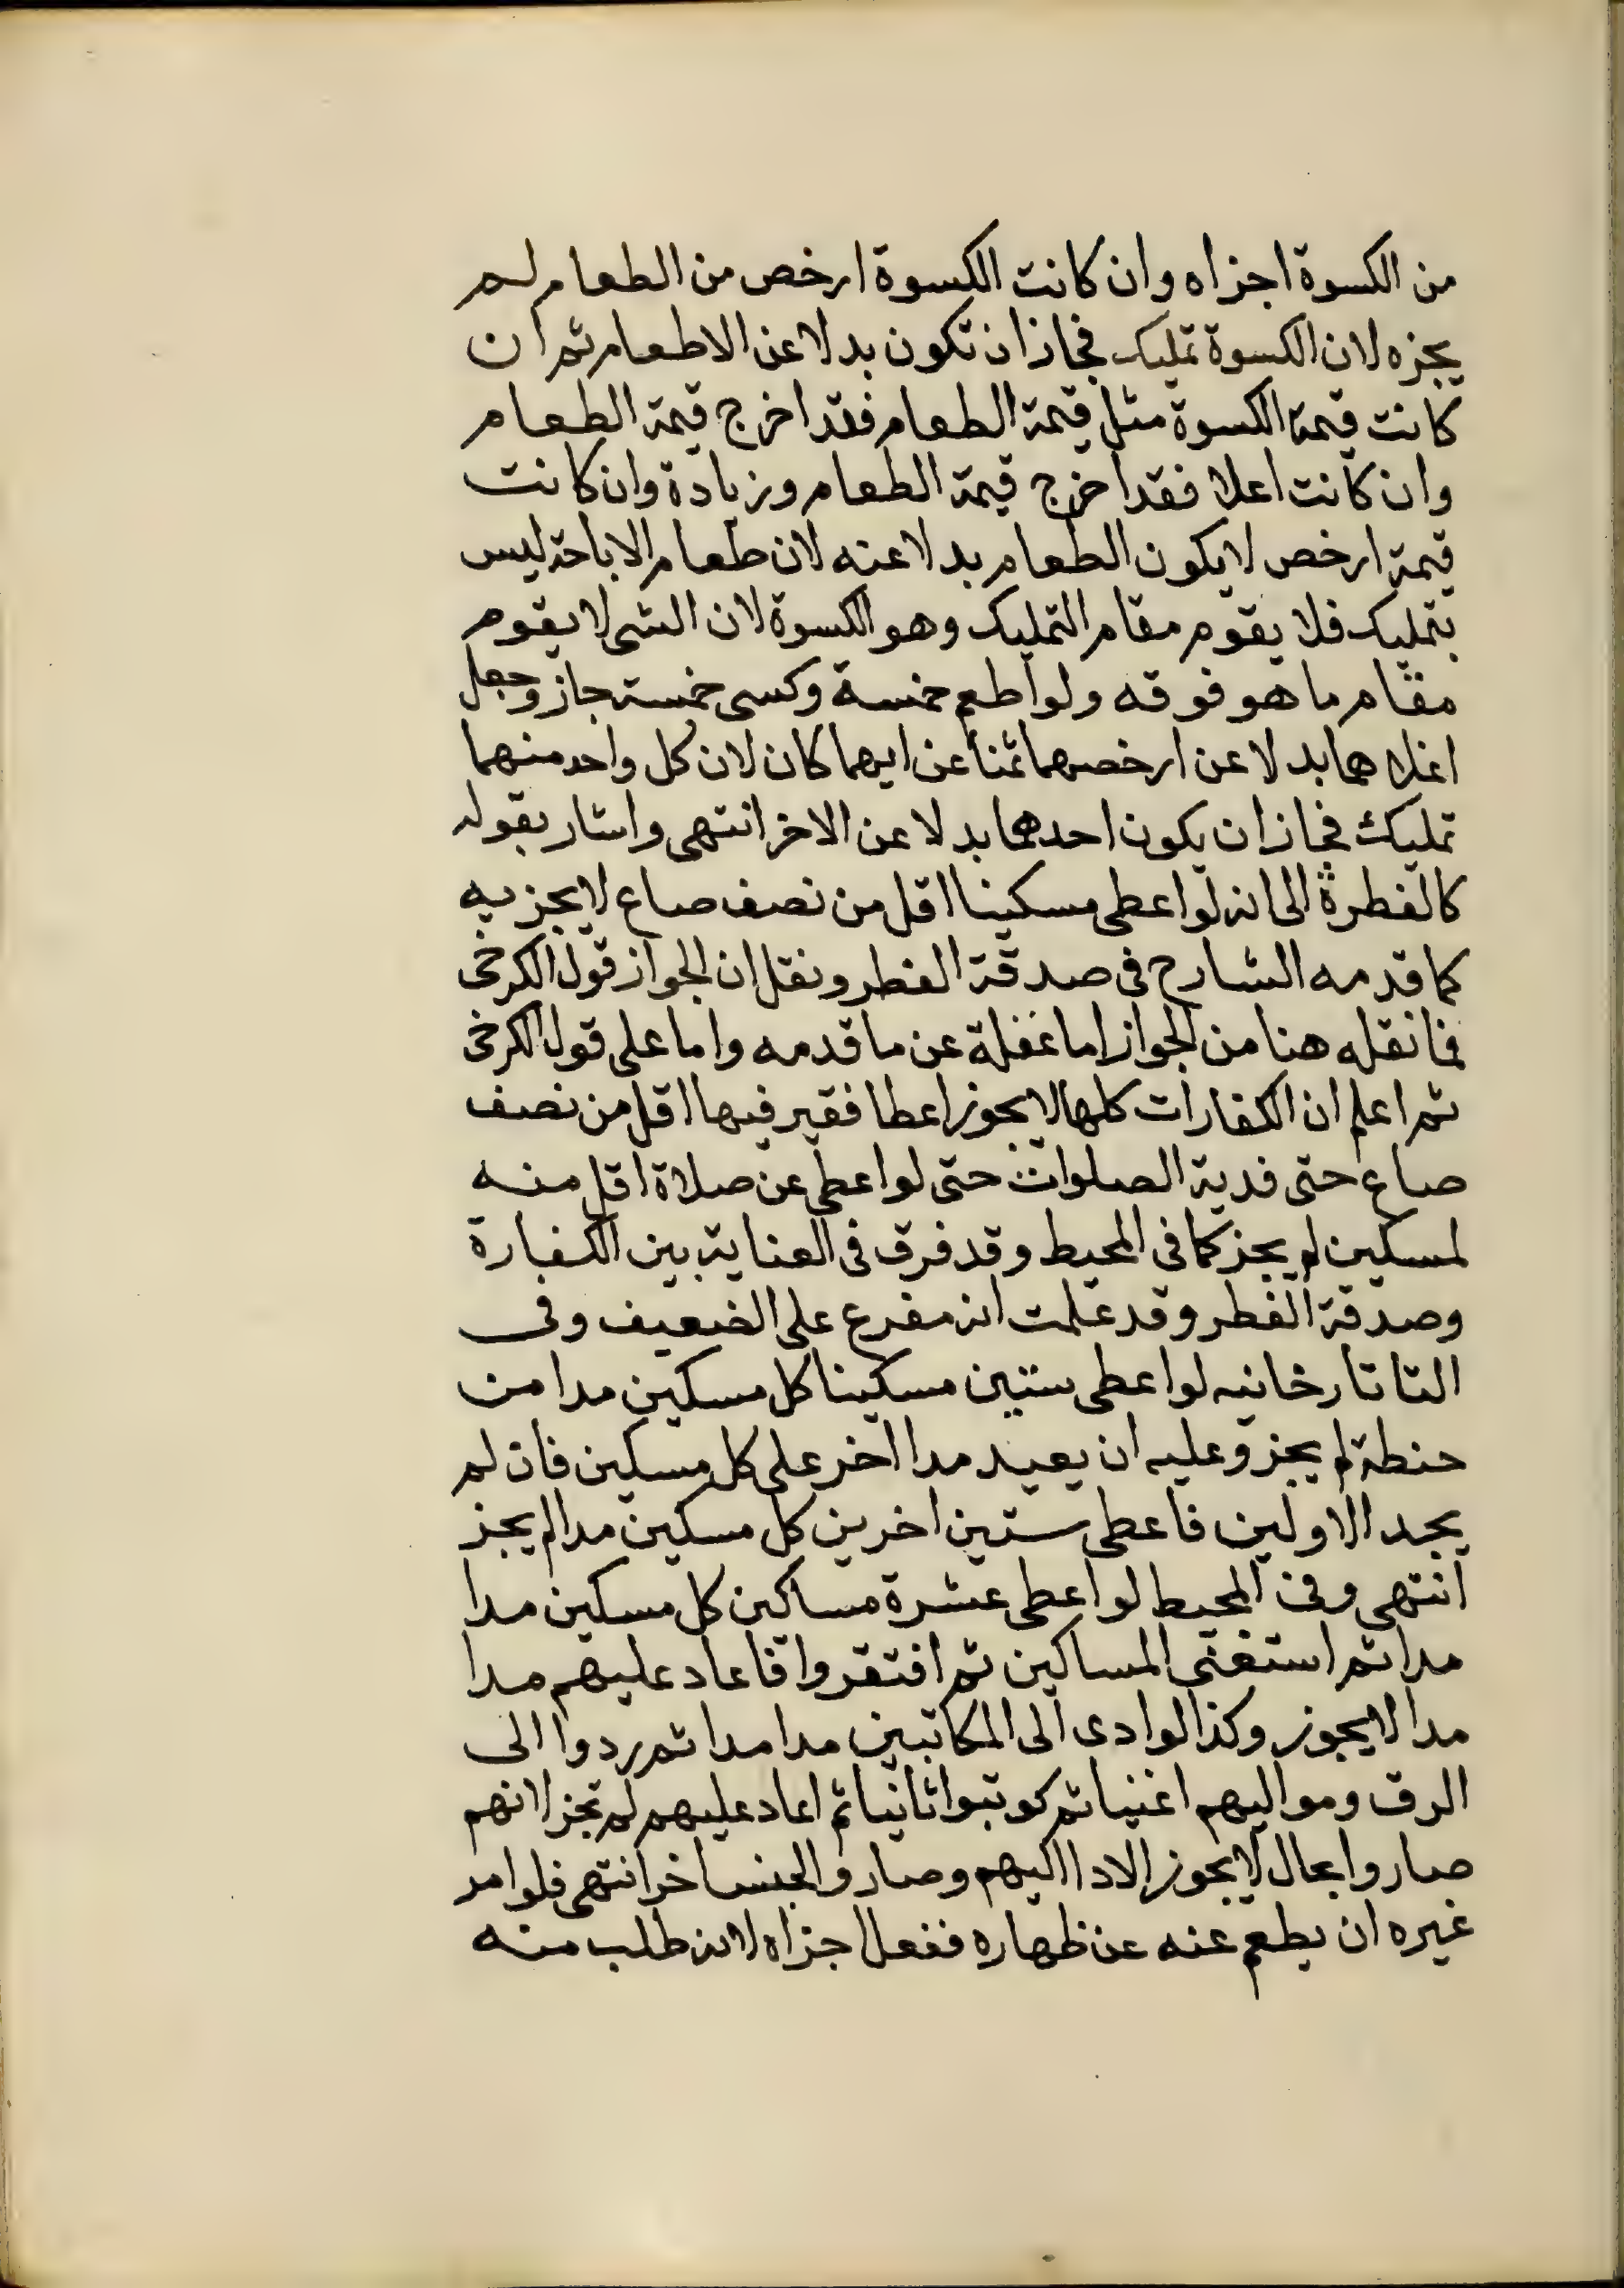 من الكسوة اجزاه وان كانت الكسوة ارخص من الطعام لم
يجزه لان الكسوة تمليك فجاز ان تكون بدلا عن الاطعام ثم ان
كانت قيمة الكسوة مثل قيمة الطعام فقد اخرج قيمة الطعام
وان كانت اعلا فقد اخرج قيمة الطعام وزيادة وان كانت
قيمته ارخص لا يكون الطعام بدلا عنه لان طعام الاباحة ليس
بتمليك فلا يقوم مقام التمليك وهو الكسوة لان الشى لا يقوم
مقام ما هو فوقه ولو اطعم خمسة وكسى خمسة جاز وجعل
اغلاهما بدلا عن ارخصهما ثمنا عن ايهما كان لان كل واحد منهما
تمليك فجاز ان يكون احدهما بدلا عن الاخر انتهى واشار بقوله
كالفطرة الى انه لو اعطى مسكينا اقل من نصف صاع لا يجزيه
كما قدمه الشارح فى صدقة الفطر ونقل ان الجواز قول الكرخى
فما نقله هنا من الجواز اما غفلة عن ما قدمه واما على قول الكرخى
ثم اعلم ان الكفارات كلها لا يجوز اعطا فقير فيها اقل من نصف
صاع حتى فدية الصلوات حتى لو اعطى عن صلاة اقل منه
لمسكين لم يجز كما فى المحيط وقد فرق فى العناية بين الكفارة
وصدقة الفطر وقد علمت انه مفرع على الضعيف وفى
التاتارخانيه لو اعطى ستين مسكينا كل مسكين مدا من
حنطة لم يجز وعليه ان يعيد مدا اخر على كل مسكين فان لم
يجد الاولين فاعطى ستين اخرين كل مسكين مدا لم يجز
انتهى وفى المحيط لو اعطى عشرة مساكين كل مسكين مدا
مدا ثم استغنى المساكين ثم افتقروا فاعاد عليهم مدا
مدا لا يجوز وكذا لو ادى الى المكاتبين مدا مدا ثم ردوا الى
الرق ومواليهم اغنيا ثم كوتبوا ثانيا ثم اعاد عليهم لم تجز لانهم
صاروا بحال لا يجوز الادا اليهم وصاروا لجنس اخر انتهى فلو امر
غيره ان يطعم عنه عن ظهاره ففعل اجزاه لانه طلب منه